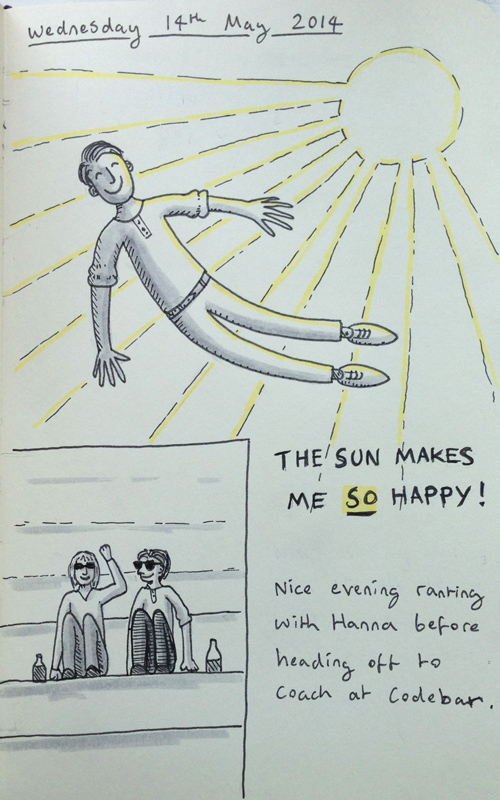 Wednesday 14th May 2014
THE SUN MAKES
ME SO HAPPY!
Nice evening ranting
with Hanna before
heading off to
coach at Codebar.